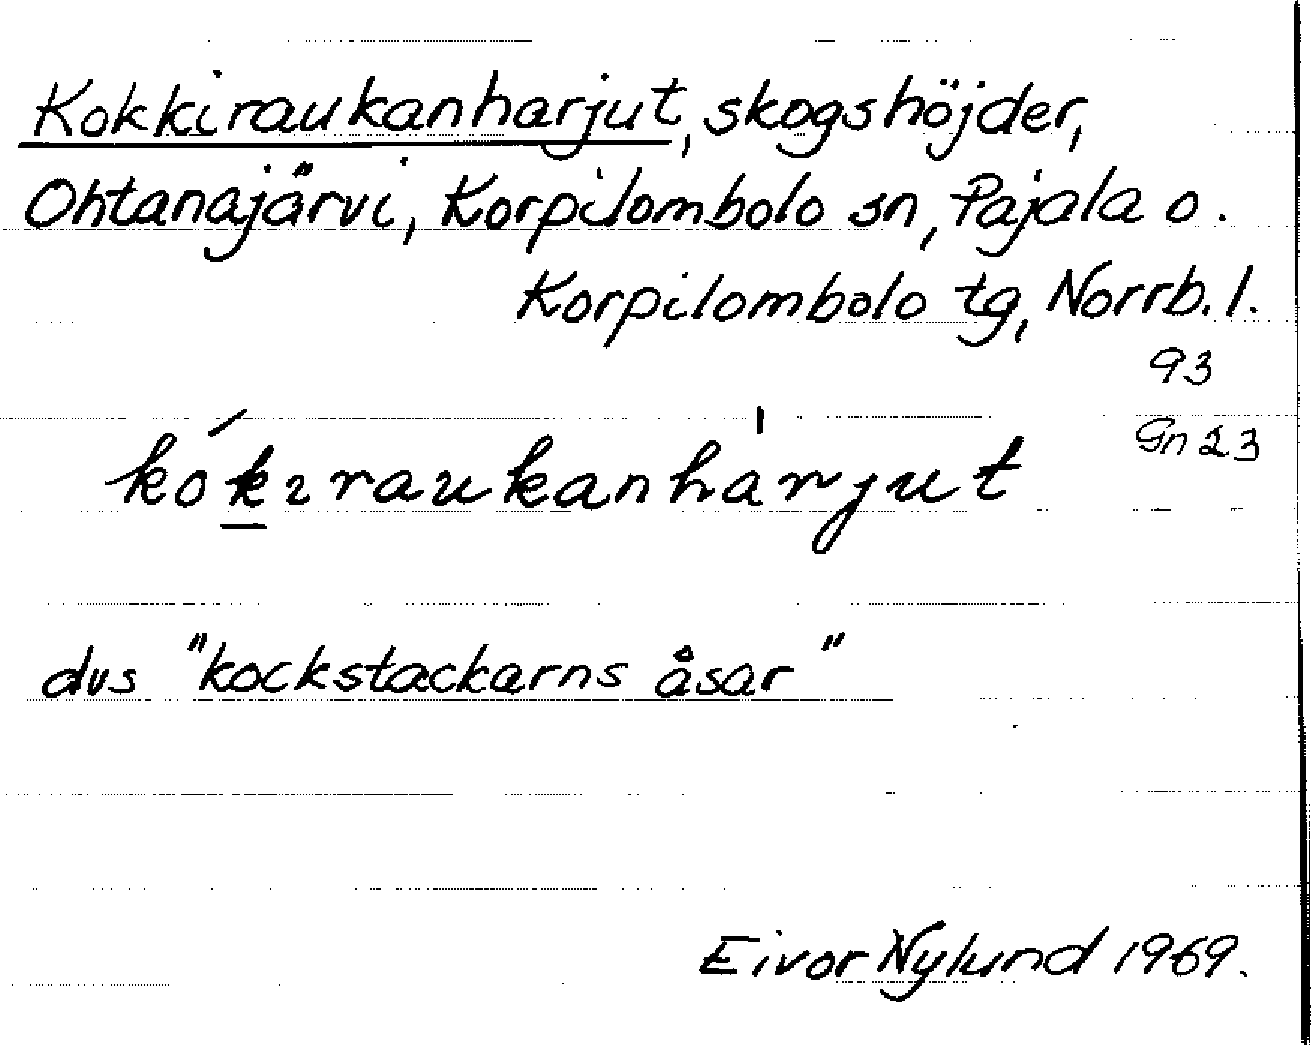 Kokkiraukanharjut, skogshöjder,
Ohtanajärvi, Korpilombolo sn, Pajala o.
Korpilombolo tg, Norrb. l.
93
Gn 23
kók̲ıraukanhàrjut
dvs "kockstackarns åsar"
Eivor Nylund 1969.